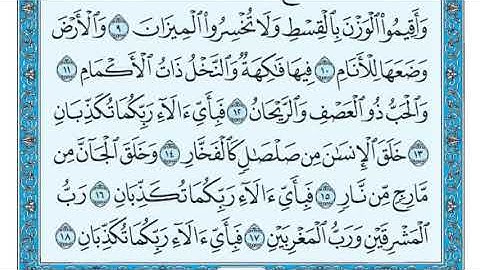 وَأَقِيمُوا۟ ٱلْوَزْنَ بِٱلْقِسْطِ وَلَا تُخْسِرُوا۟ ٱلْمِيزَانَ ٩ وَٱلْأَرْضَ
وَضَعَهَا لِلْأَنَامِ ١٠ فِيهَا فَٰكِهَةٌ وَٱلنَّخْلُ ذَاتُ ٱلْأَكْمَامِ ١١
وَٱلْحَبُّ ذُو ٱلْعَصْفِ وَٱلرَّيْحَانُ ١٢ فَبِأَىِّ ءَالَآءِ رَبِّكُمَا تُكَذِّبَانِ
١٣ خَلَقَ ٱلْإِنسَٰنَ مِن صَلْصَٰلٍ كَٱلْفَخَّارِ ١٤ وَخَلَقَ ٱلْجَآنَّ مِن
مَّارِجٍ مِّن نَّارٍ ١٥ فَبِأَىِّ ءَالَآءِ رَبِّكُمَا تُكَذِّبَانِ ١٦ رَبُّ
ٱلْمَشْرِقَيْنِ وَرَبُّ ٱلْمَغْرِبَيْنِ ١٧ فَبِأَىِّ ءَالَآءِ رَبِّكُمَا تُكَذِّبَانِ ١٨